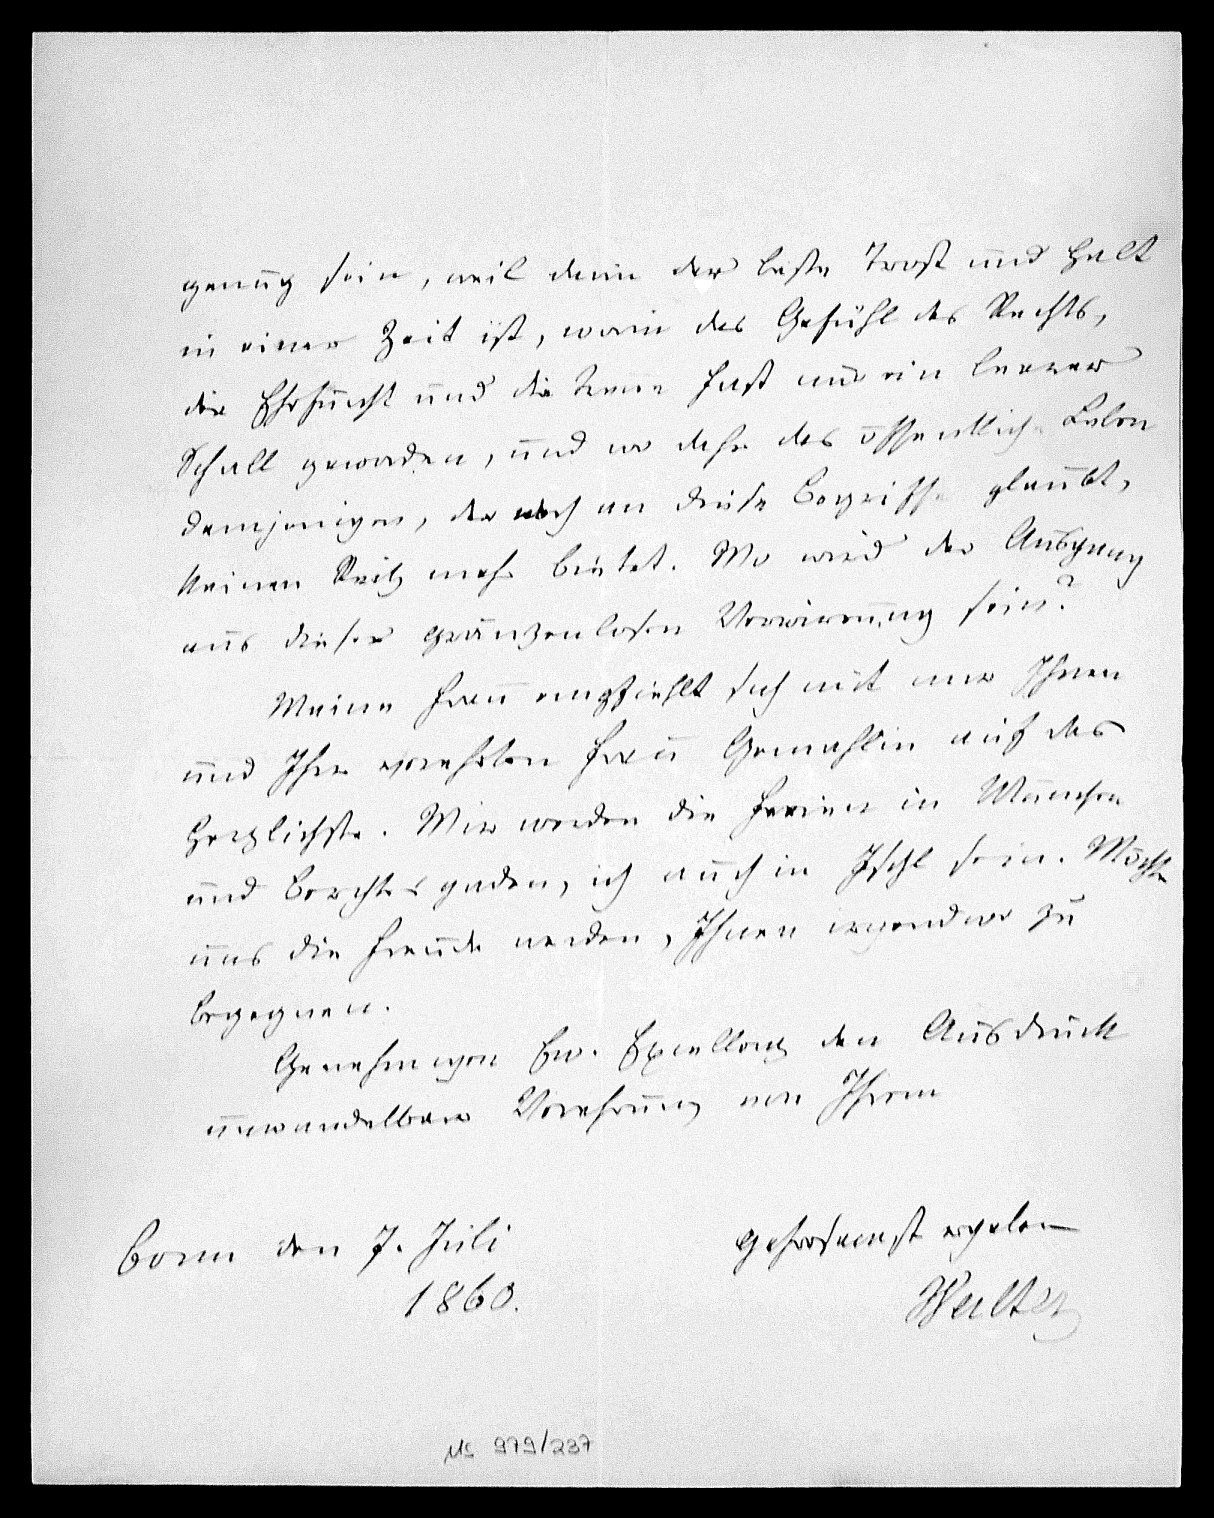 genug sein, weil darin der beste Trost und Halt
in einer Zeit ist, worin das Gefühl des Rechts,
die Ehrfurcht und die Treue fast nur ein leerer
Schall geworden, und wo daher das öffentliche Leben
demjenigen, der noch an diese Begriffe glaubt,
keinen Reitz mehr bietet. Wo wird der Ausgang
aus dieser gränzenlosen Verwirrung sein?
Meine Frau empfiehlt sich mit mir Ihnen
und Ihrer verehrten Frau Gemahlin auf das
Herzlichste. Wir werden die Ferien in München
und Berchtesgaden, ich auch in Ischl sein. Möchte
uns die Freude werden, Ihnen irgendwo zu
begegnen.
Genehmigen Ew. Excellenz den Ausdruck
unwandelbarer Verehrung von Ihrem
Bonn den 7. Juli
1860.
gehorsamst ergebenen
Walter
Ms 979/237